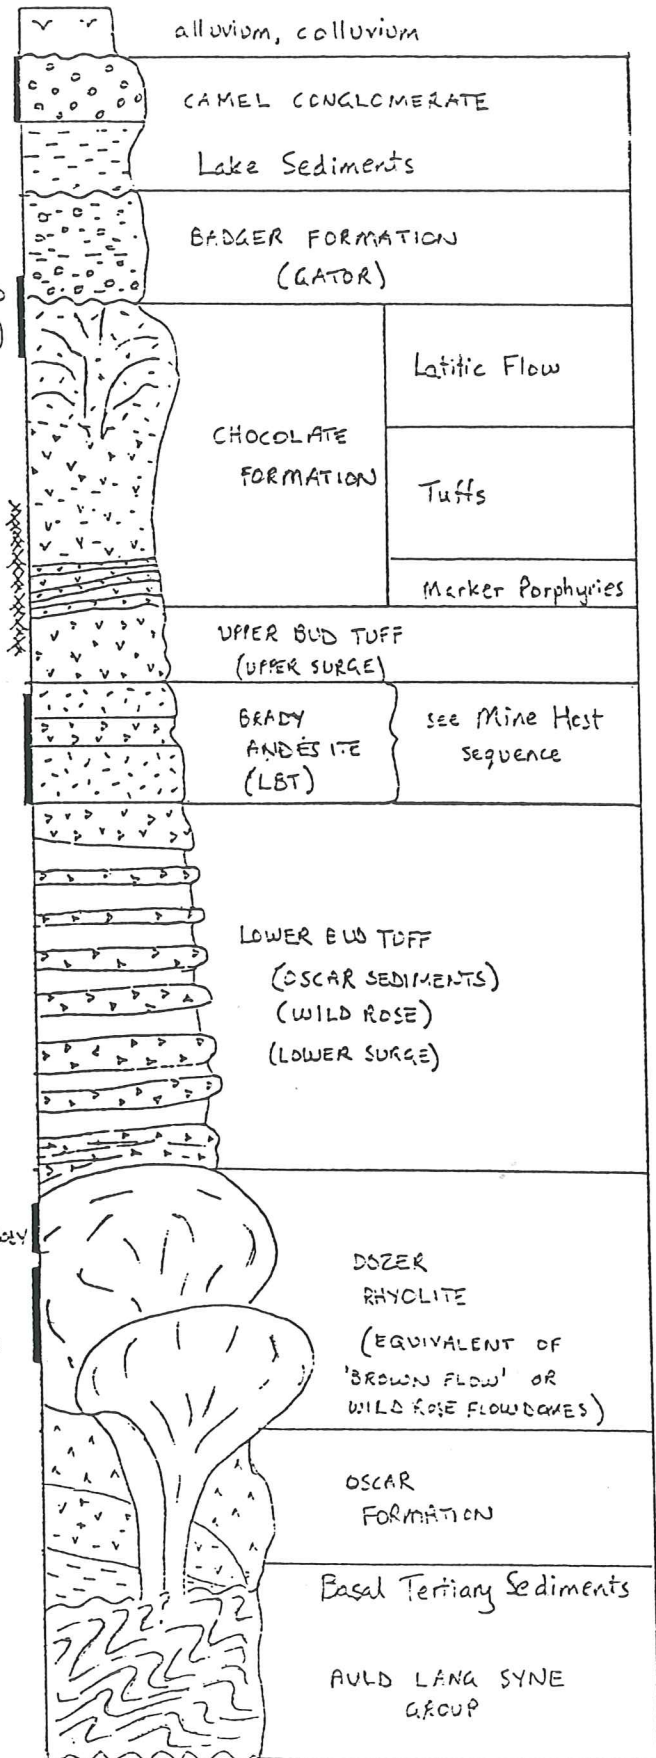 alluvium, colluvium
CAMEL CONGLOMERATE
Lake Sediments
BADGER FORMATION
(GATOR)
CHOCOLATE
FORMATION
Latitic Flow
Tuffs
Marker Porphyries
UPPER BUD TUFF
(UPPER SURGE)
BRADY
ANDESITE
(LBT)
see Mine Host
sequence
LOWER BUD TUFF
(OSCAR SEDIMENTS)
(WILD ROSE)
(LOWER SURGE)
DOZER
RHYOLITE
(EQUIVALENT OF
'BROWN FLOW' OR
WILD ROSE FLOWDOMES)
OSCAR
FORMATION
Basal Tertiary Sediments
AULD LANG SYNE
GROUP